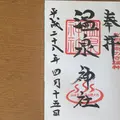 奉拝
温泉神社
平成二十八年四月十五日